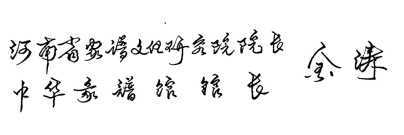 河南省家谱文化研究院院长
中华家谱馆馆长
金涛